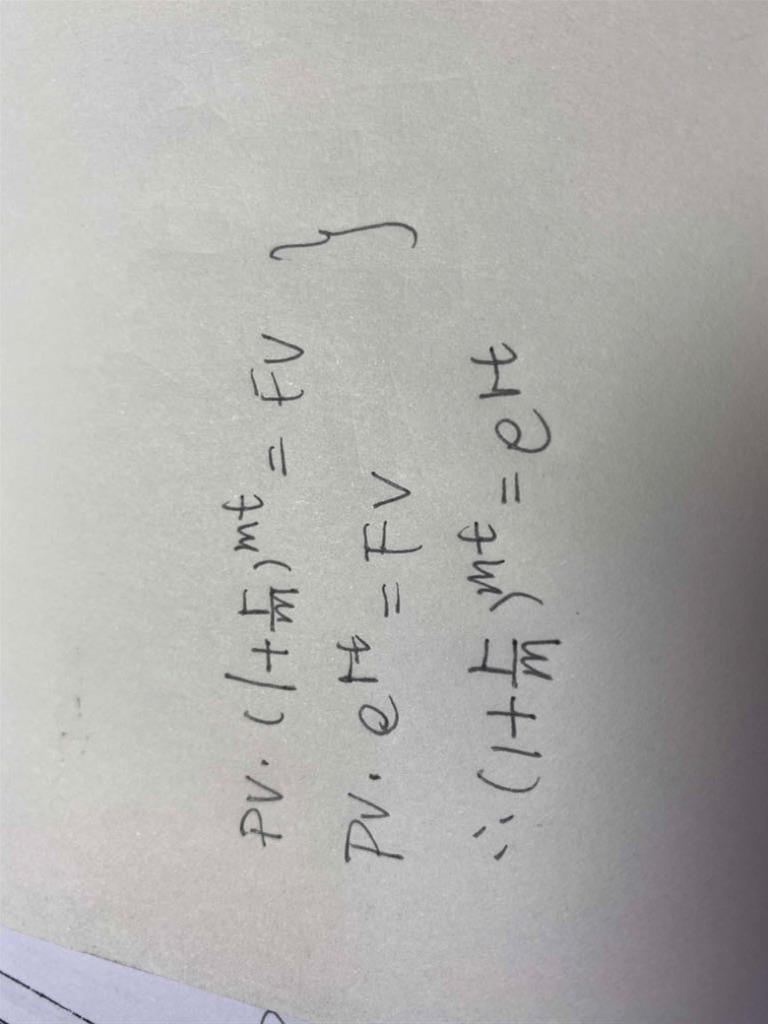 PV · (1 + r/m)^mt = FV }
PV · e^rt = FV
∴ (1 + r/m)^mt = e^rt